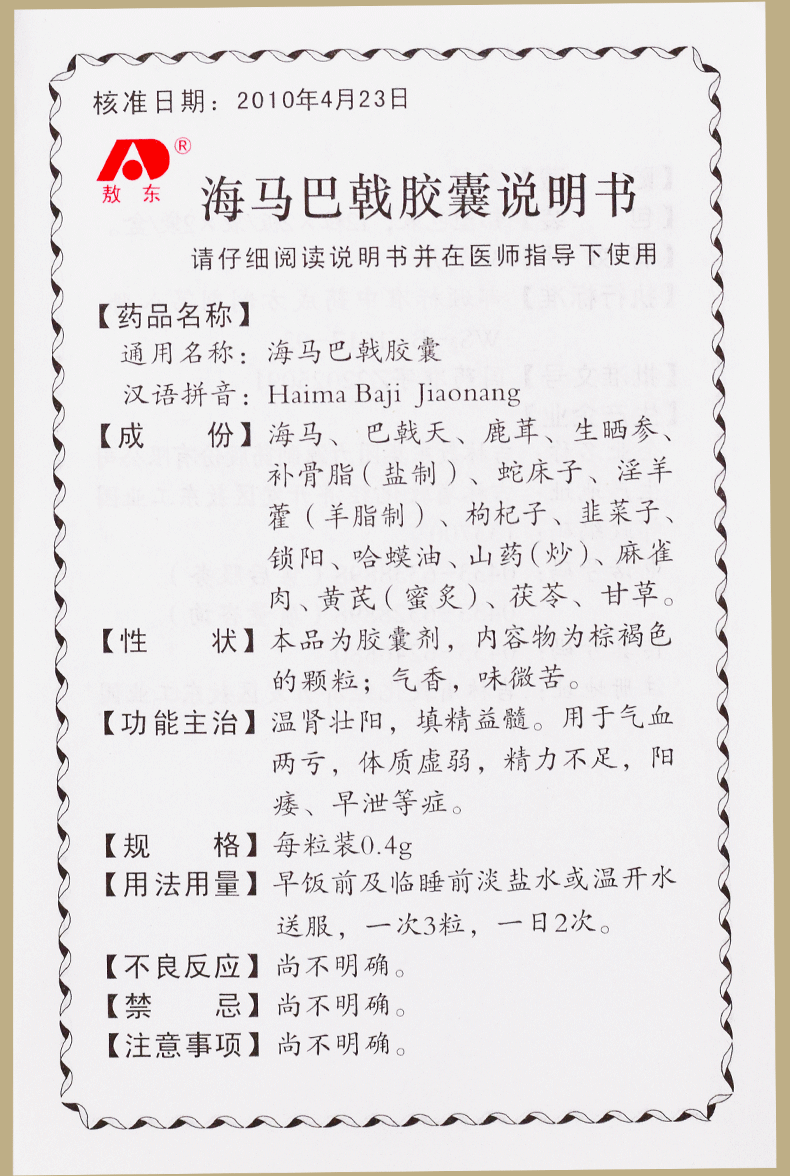 核准日期：2010年4月23日
®
敖东
海马巴戟胶囊说明书
请仔细阅读说明书并在医师指导下使用
【药品名称】
通用名称：海马巴戟胶囊
汉语拼音：Haima Baji Jiaonang
【成　份】海马、巴戟天、鹿茸、生晒参、
补骨脂（盐制）、蛇床子、淫羊
藿（羊脂制）、枸杞子、韭菜子、
锁阳、哈蟆油、山药(炒)、麻雀
肉、黄芪（蜜炙）、茯苓、甘草。
【性　状】本品为胶囊剂，内容物为棕褐色
的颗粒；气香，味微苦。
【功能主治】温肾壮阳，填精益髓。用于气血
两亏，体质虚弱，精力不足，阳
痿、早泄等症。
【规　格】每粒装0.4g
【用法用量】早饭前及临睡前淡盐水或温开水
送服，一次3粒，一日2次。
【不良反应】尚不明确。
【禁　忌】尚不明确。
【注意事项】尚不明确。